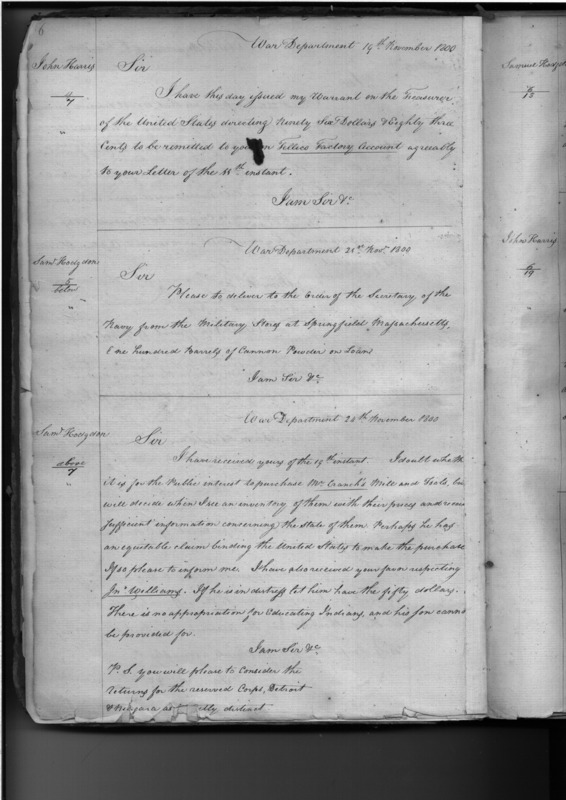 6
War Department 19th November 1800
John Harris
4
7
"
Sir
I have this day issued my Warrant on the Treasurer
of the United States directing Ninety Six Dollars & Eighty three
Cents to be remitted to you on Tellico Factory Account agreeably
to your Letter of the 11th instant.
I am Sir &c
War Department 21st Novr 1800
Saml Hodgdon
5
Sir
Please to deliver to the Order of the Secretary of the
Navy from the Military Stores at Springfield Massachusetts,
One hundred Barrels of Cannon Powder on Loan
I am Sir &c
War Department 20th November 1800
Saml Hodgdon
above
7
"
Sir
I have received yours of the 19th instant. I doubt wheth
it is for the Public interest to purchase Mr Cranch's Mill and Tools, but
will decide when I see an inventory of them with their prices and receive
sufficient information concerning the state of them. Perhaps he has
an equitable claim binding the United States to make the purchase
If so please to inform me. I have also received your favor respecting
Jno Williams. If he is in distress let him have the fifty dollars.
There is no appropriation for Educating Indians, and his son cannot
be provided for.
I am Sir &c
P. S. you will please to consider the
returns for the reserved Corps, Detroit
& Niagara as distinct
Samuel Hodgd
18
"
John Harris
19
"